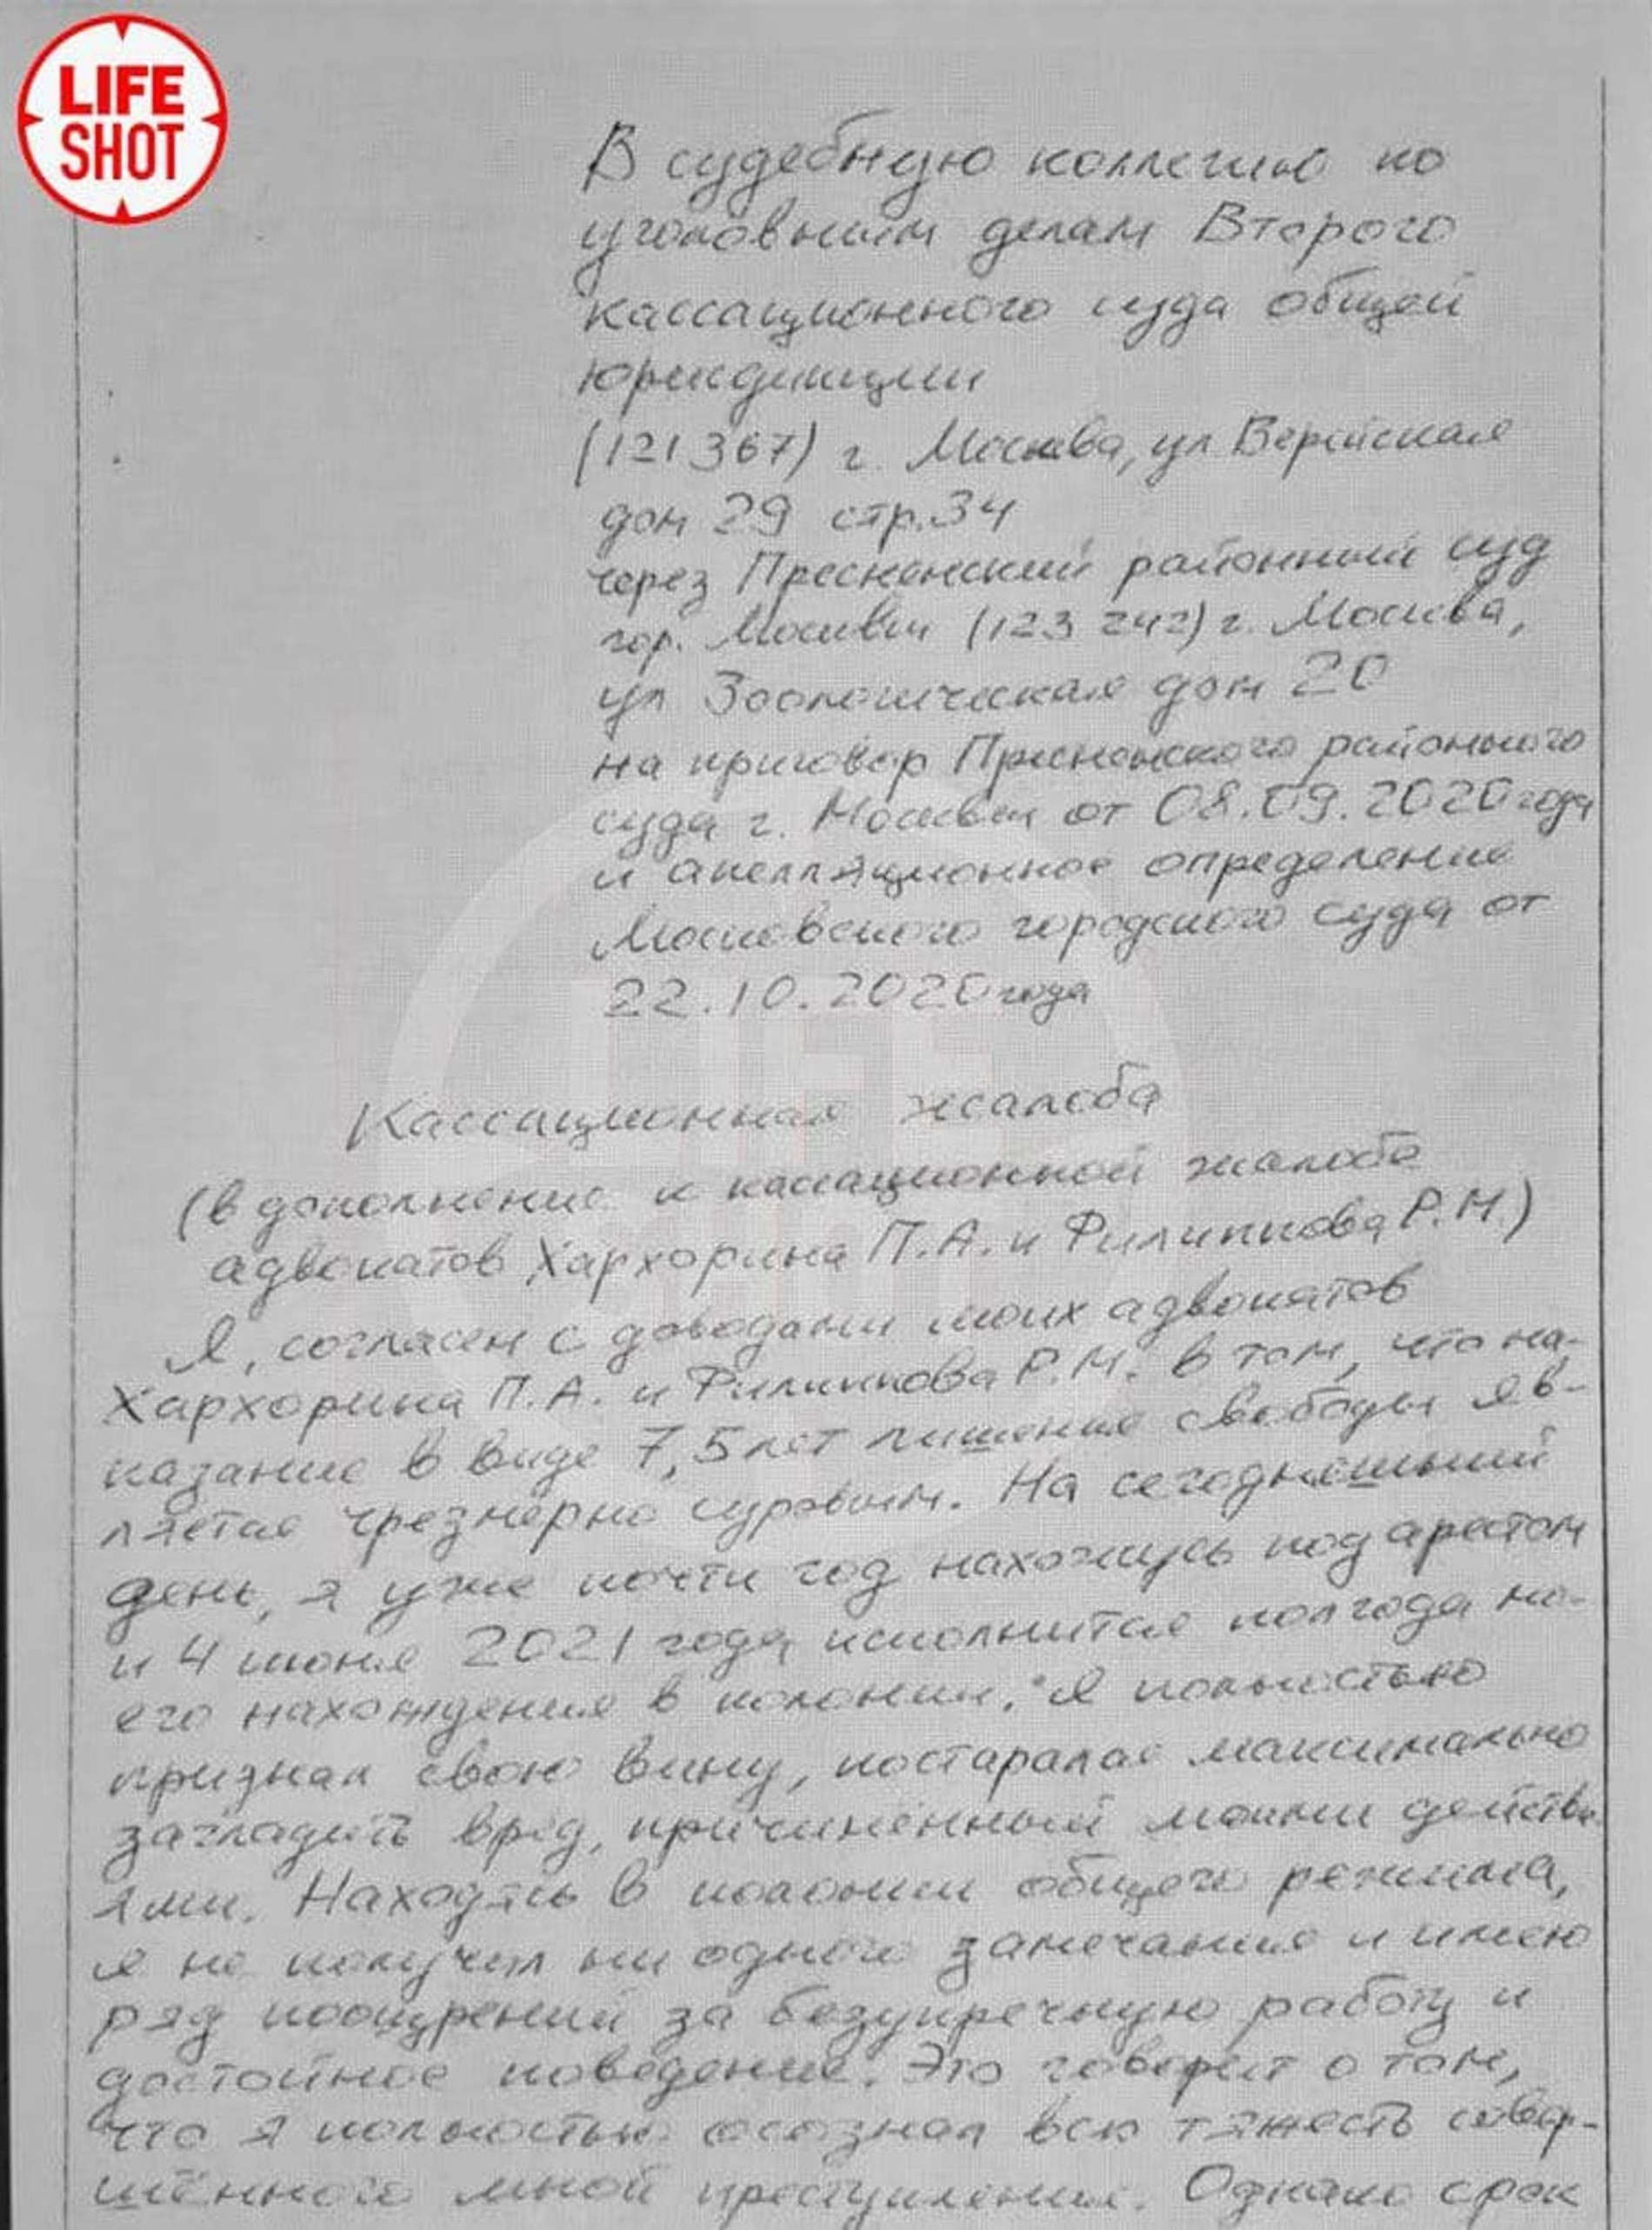 LIFE
SHOT
В судебную коллегию по
уголовным делам Второго
кассационного суда общей
юрисдикции
(121367) г. Москва, ул Верейская
дом 29 стр.34
через Пресненский районный суд
гор. Москвы (123 242) г. Москва,
ул Зоологическая дом 20
на приговор Пресненского районного
суда г. Москвы от 08.09.2020 года
и апелляционное определение
Московского городского суда от
22.10.2020 года
Кассационная жалоба
(в дополнение к кассационной жалобе
адвокатов Хархорина П.А. и Филиппова Р.М.)
Я, согласен с доводами моих адвокатов
Хархорина П.А. и Филиппова Р.М. в том, что на-
казание в виде 7,5 лет лишения свободы яв-
ляется чрезмерно суровым. На сегодняшний
день, я уже почти год нахожусь под арестом
и 4 июня 2021 года исполнится полгода мо-
его нахождения в колонии. Я полностью
признал свою вину, постарался максимально
загладить вред, причинённый моими действи
ями. Находясь в колонии общего режима,
я не получил ни одного замечания и имею
ряд поощрений за безупречную работу и
достойное поведение. Это говорит о том,
что я полностью осознал всю тяжесть совер-
шённого мной преступления. Однако срок